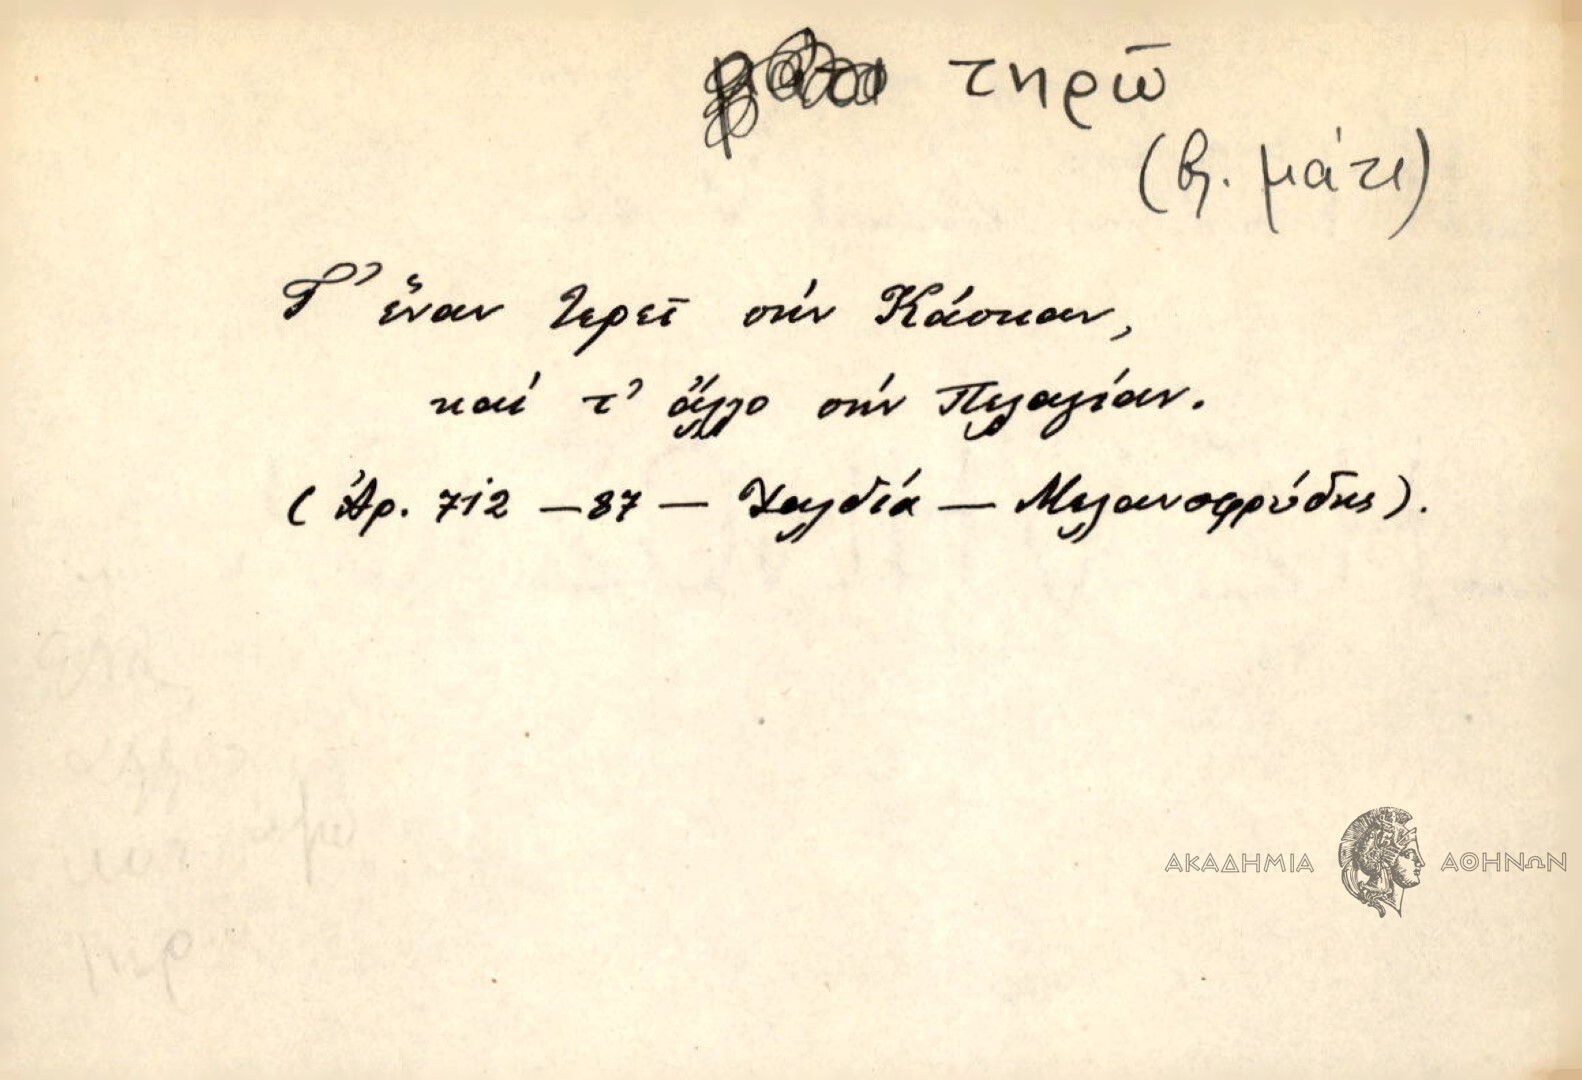 τηρῶ
(βλ. μάτι)
Τ' ἕναν τερεῖ σήν Κάσκαν,
καί τ' ἄλλο σήν Πελαγίαν.
(Ἀρ. 712 – 87 – Χαλδία – Μελανοφρύδης).
ΑΚΑΔΗΜΙΑ ΑΘΗΝΩΝ